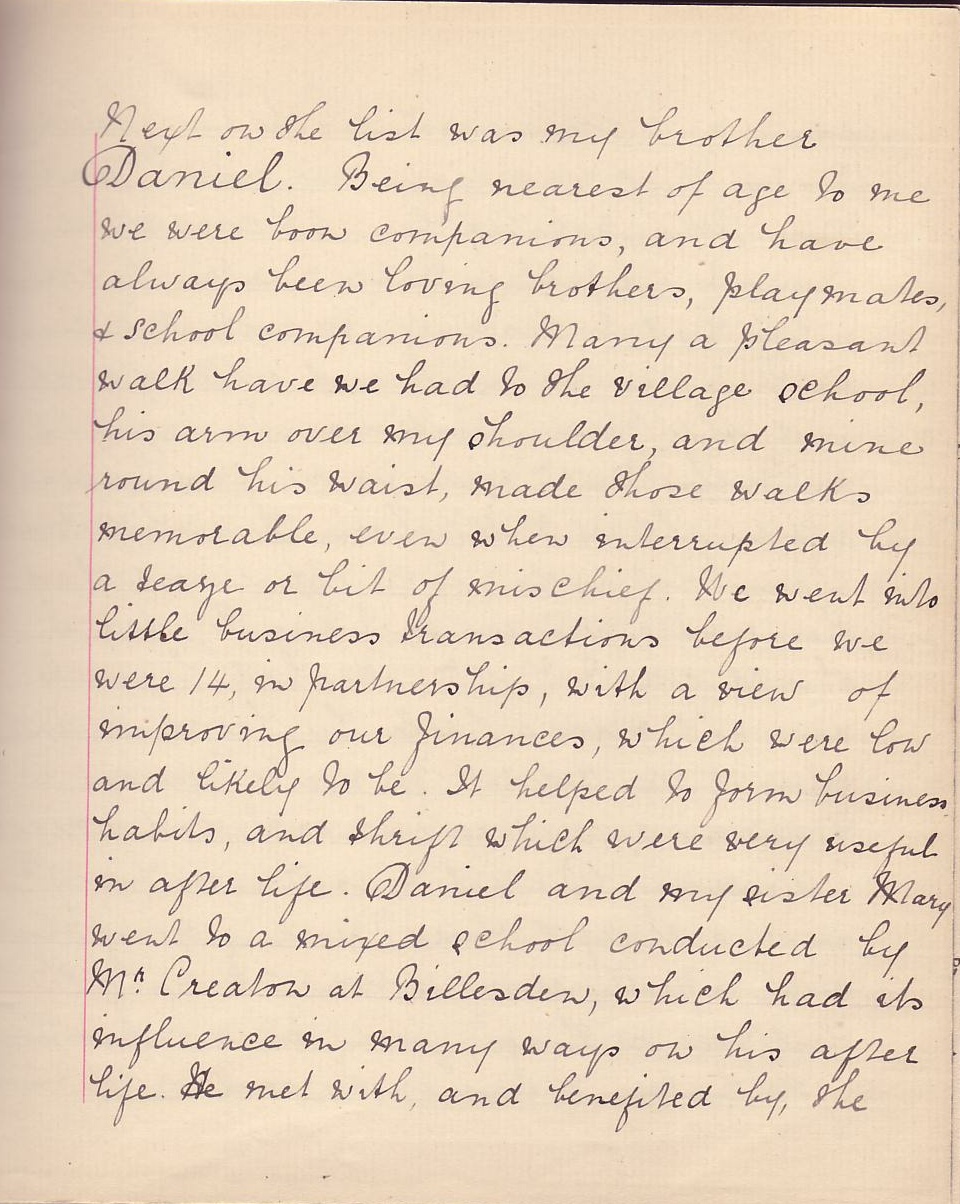 Next on the list was my brother
Daniel. Being nearest of age to me
we were boon companions, and have
always been loving brothers, playmates,
& school companions. Many a pleasant
walk have we had to the village school,
his arm over my shoulder, and mine
round his waist, made those walks
memorable, even when interrupted by
a teaze or bit of mischief. We went into
little business transactions before we
were 14, in partnership, with a view of
improving our finances, which were low
and likely to be. It helped to form business
habits, and thrift which were very useful
in after life. Daniel and my sister Mary
went to a mixed school conducted by
Mr. Creaton at Billesden, which had its
influence in many ways on his after
life. He met with, and benefited by, the